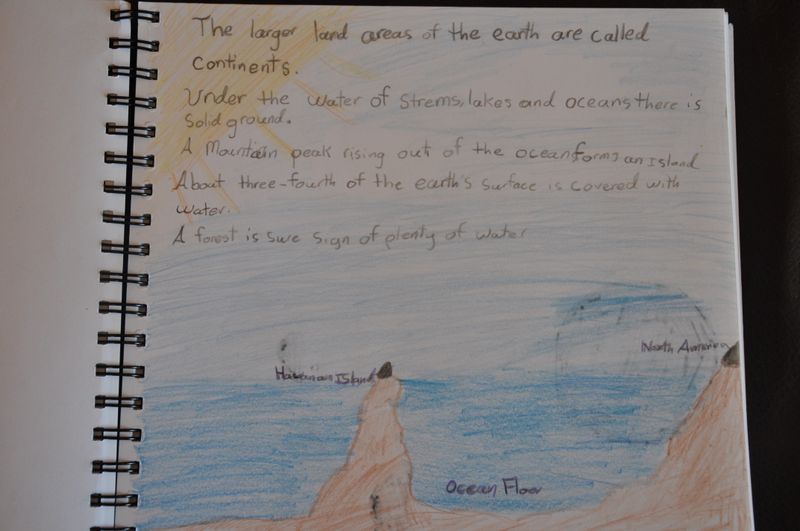 The larger land areas of the earth are called
continents.
Under the water of Strems, lakes and oceans there is
Solid ground.
A Mountain peak rising out of the ocean forms an Island
About three-fourth of the earth's surface is covered with
water.
A forest is sure sign of plenty of water
North America
Hawaiian Island
Ocean Floor